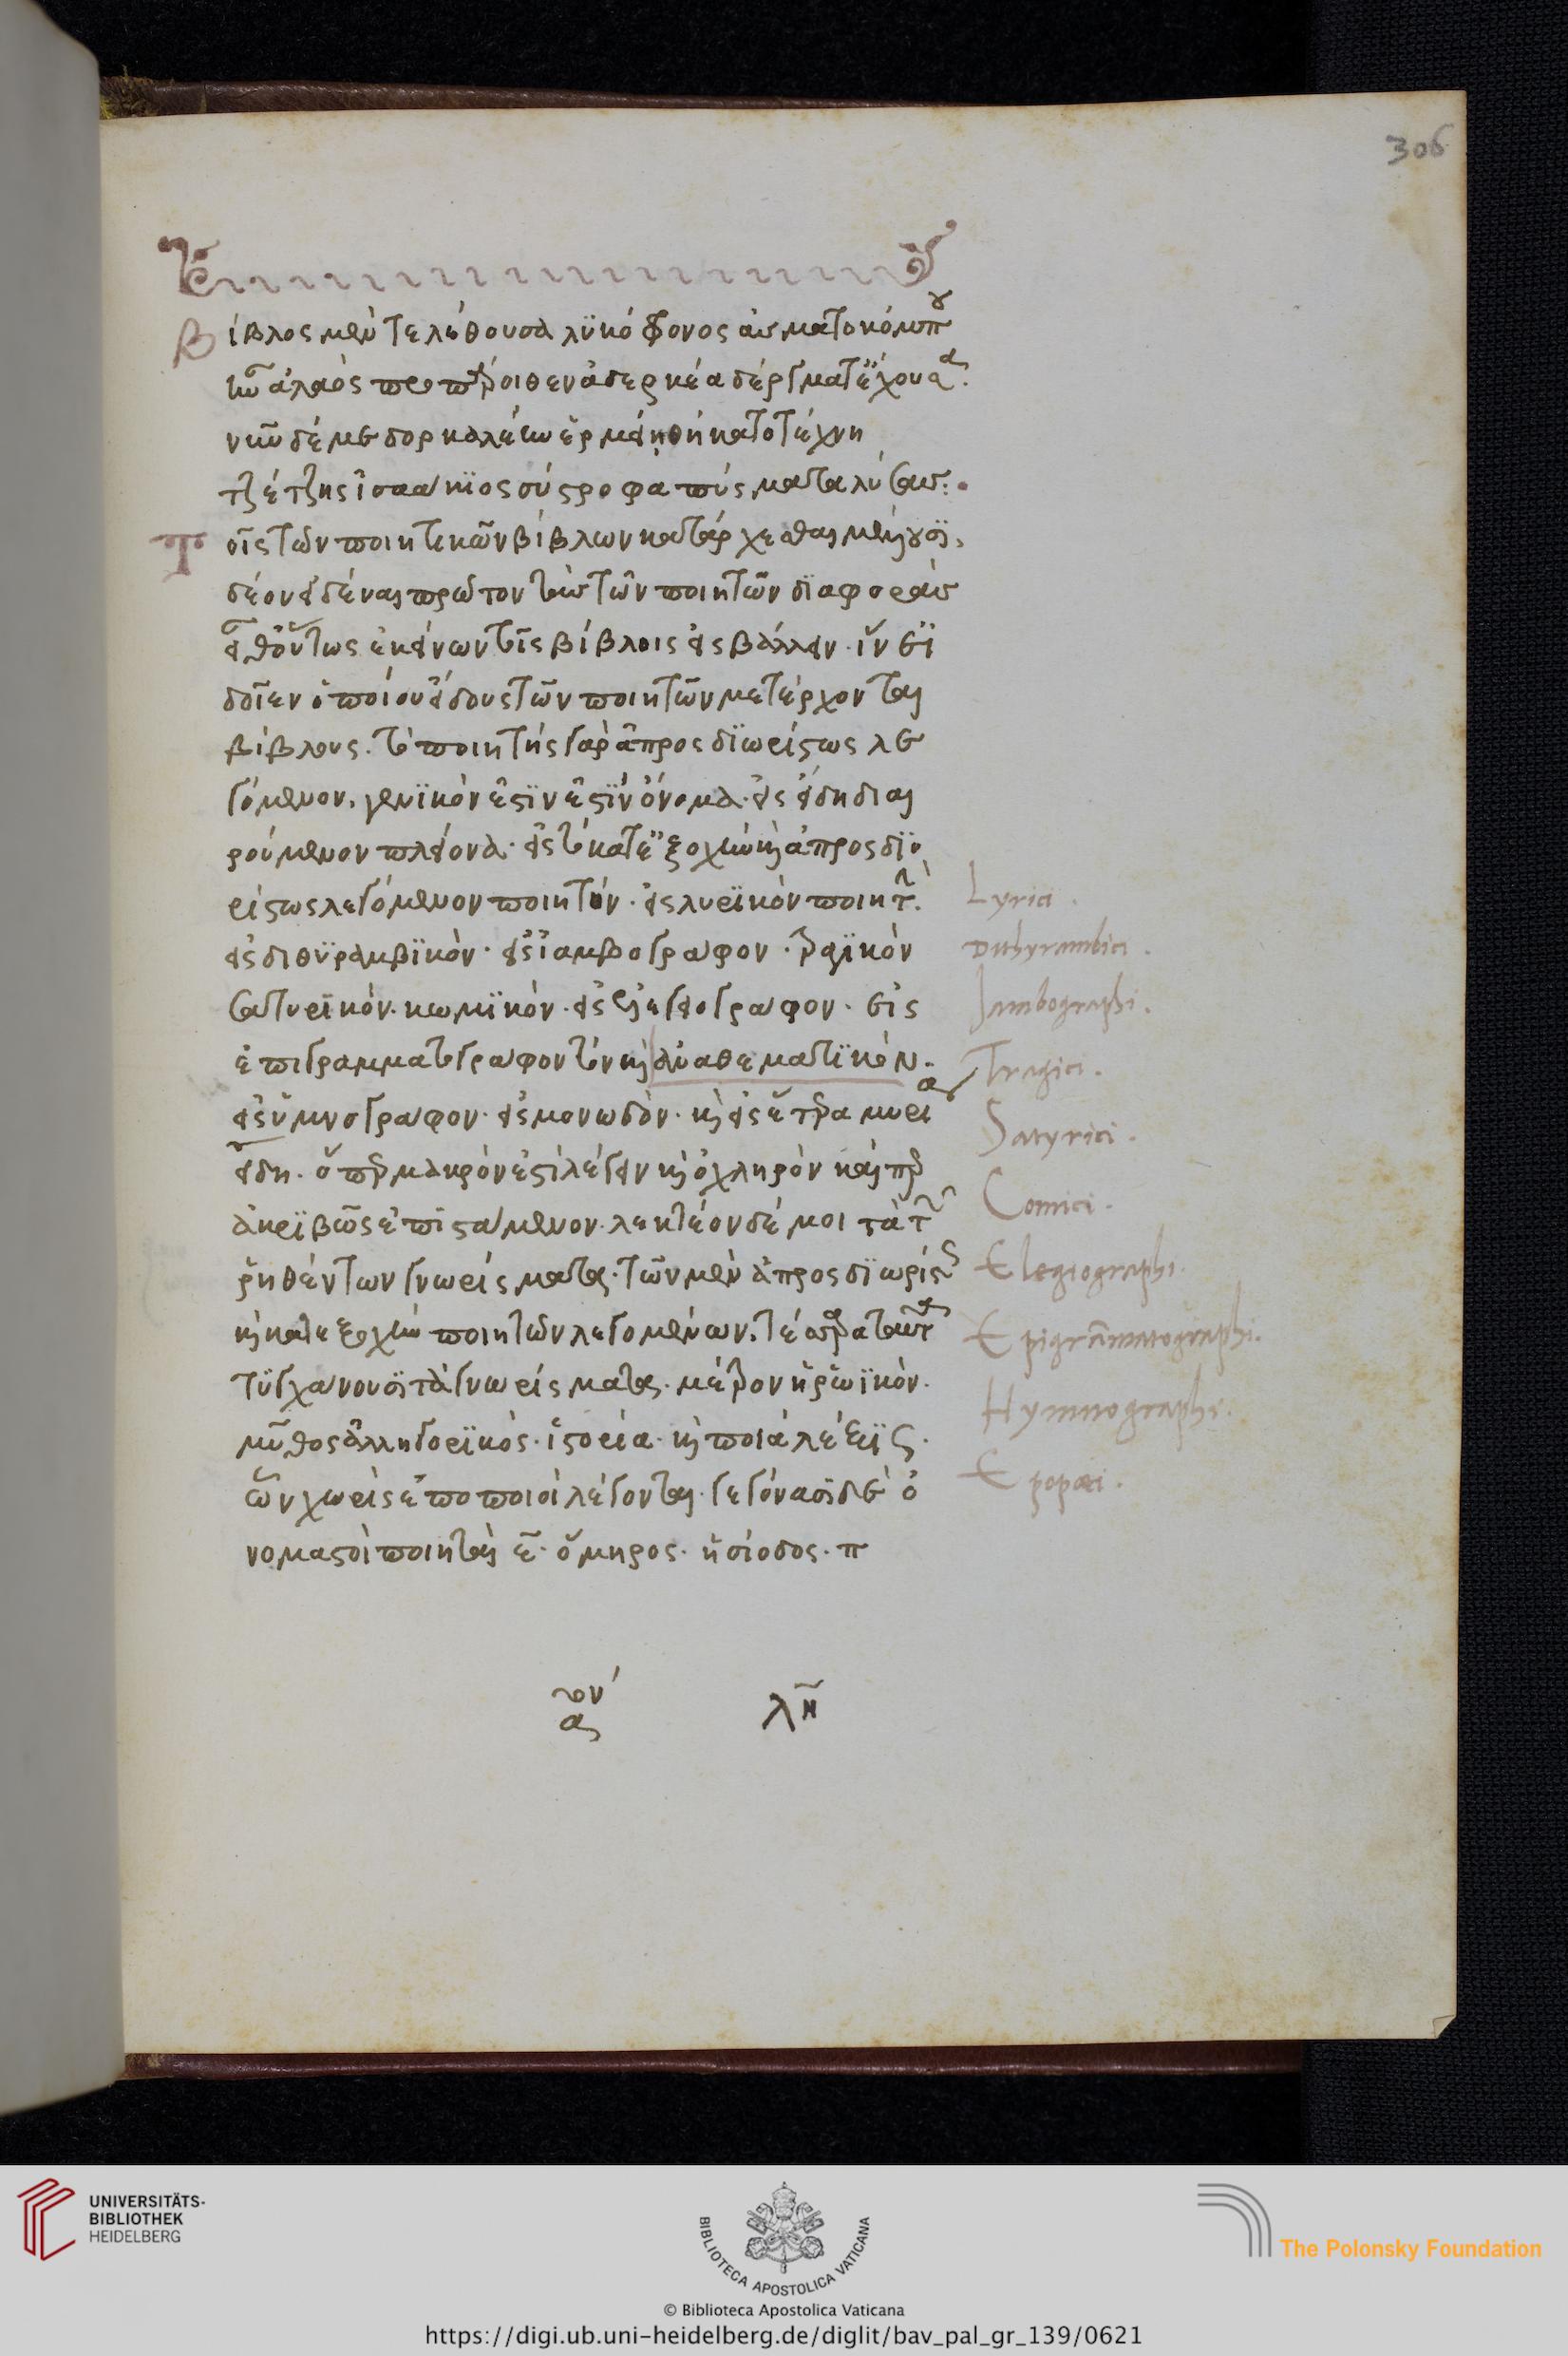 306
Βίβλος μὲν τελέθουσα λϋκόφρονος ἀσματοκόμπου
τὴν ἀλαὸς προπάροιθεν ἀδερκέα δέργματ' ἔχουσα.
νῦν δέ με δορκαλέην ἑρμείη θήκατο τέχνη
τζέτζης ἰσαακϊος σύστροφα πούς ματα λύσας:
Τοῖς τῶν ποιητικῶν βίβλων κατάρχεσθαι μέλλουσι,
δέον εἰδέναι πρῶτον τὰς τῶν ποιητῶν δϊαφορὰς
εἶθ' οὕτως ἐκείνων ταῖς βίβλοις εἰσβάλλειν. ἵν' εἰ
δοῖεν ὁποίου εἴδους τῶν ποιητῶν μετέρχονται
βίβλους. τὸ ποιητὴς γὰρ ἀπροσδϊωρίστως λε
γόμενον, γενϊκόν ἐστϊν ἐστϊν ὄνομα. εἰς εἴδη διαι
ρούμενον πλείονα. εἴς τε κατ' ἐξοχὴν καὶ ἀπροσδϊο
ρίστως λεγόμενον ποιητήν. εἰς λυρϊκὸν ποιητ.
εἰς διθϋραμβϊκὸν. εἰς ἰαμβογράφον. τραγϊκὸν
σατυρϊκόν. κωμϊκὸν. εἰς ἐλεγειογράφον. εἰς
ἐπιγραμματογράφον τὸν καὶ ἀναθεματϊκὸν.
εἰς ὑμνογράφον. εἰς μονωδὸν. καὶ εἰς ἕτερα μυρία
εἴδη. ἅπερ μακρόν ἐστι λέγειν καὶ ὀχληρὸν καίπερ
ἀκρϊβῶς ἐπιστάμενον. λεκτέον δέ μοι τὰ τῶν
ῥηθέντων γνωρίσματα. τῶν μὲν ἀπροσδϊωρίστως
καὶ κατ' ἐξοχὴν ποιητῶν λεγομένων, τέσσαρα ταῦτα
τϋγχάνουσϊ τὰ γνωρίσματα. μέτρον ἡρωϊκὸν.
μῦθος ἀλληγορϊκὸς. ἱστορία. καὶ ποιὰ λέξϊς.
ὧν χωρὶς ἐποποιοὶ λέγονται. γεγόνασϊ δὲ ὀ
νομαστοὶ ποιηταὶ ε. ὅμηρος. ἡσίοδος. π
Lyrici.
Dithyrambici.
Iambographi.
Tragici.
Satyrici.
Comici.
Elegiographi.
Epigrammatographi.
Hymnographi.
Epopoei.
λη
UNIVERSITÄTS-
BIBLIOTHEK
HEIDELBERG
BIBLIOTECA APOSTOLICA VATICANA
The Polonsky Foundation
© Biblioteca Apostolica Vaticana
https://digi.ub.uni-heidelberg.de/diglit/bav_pal_gr_139/0621